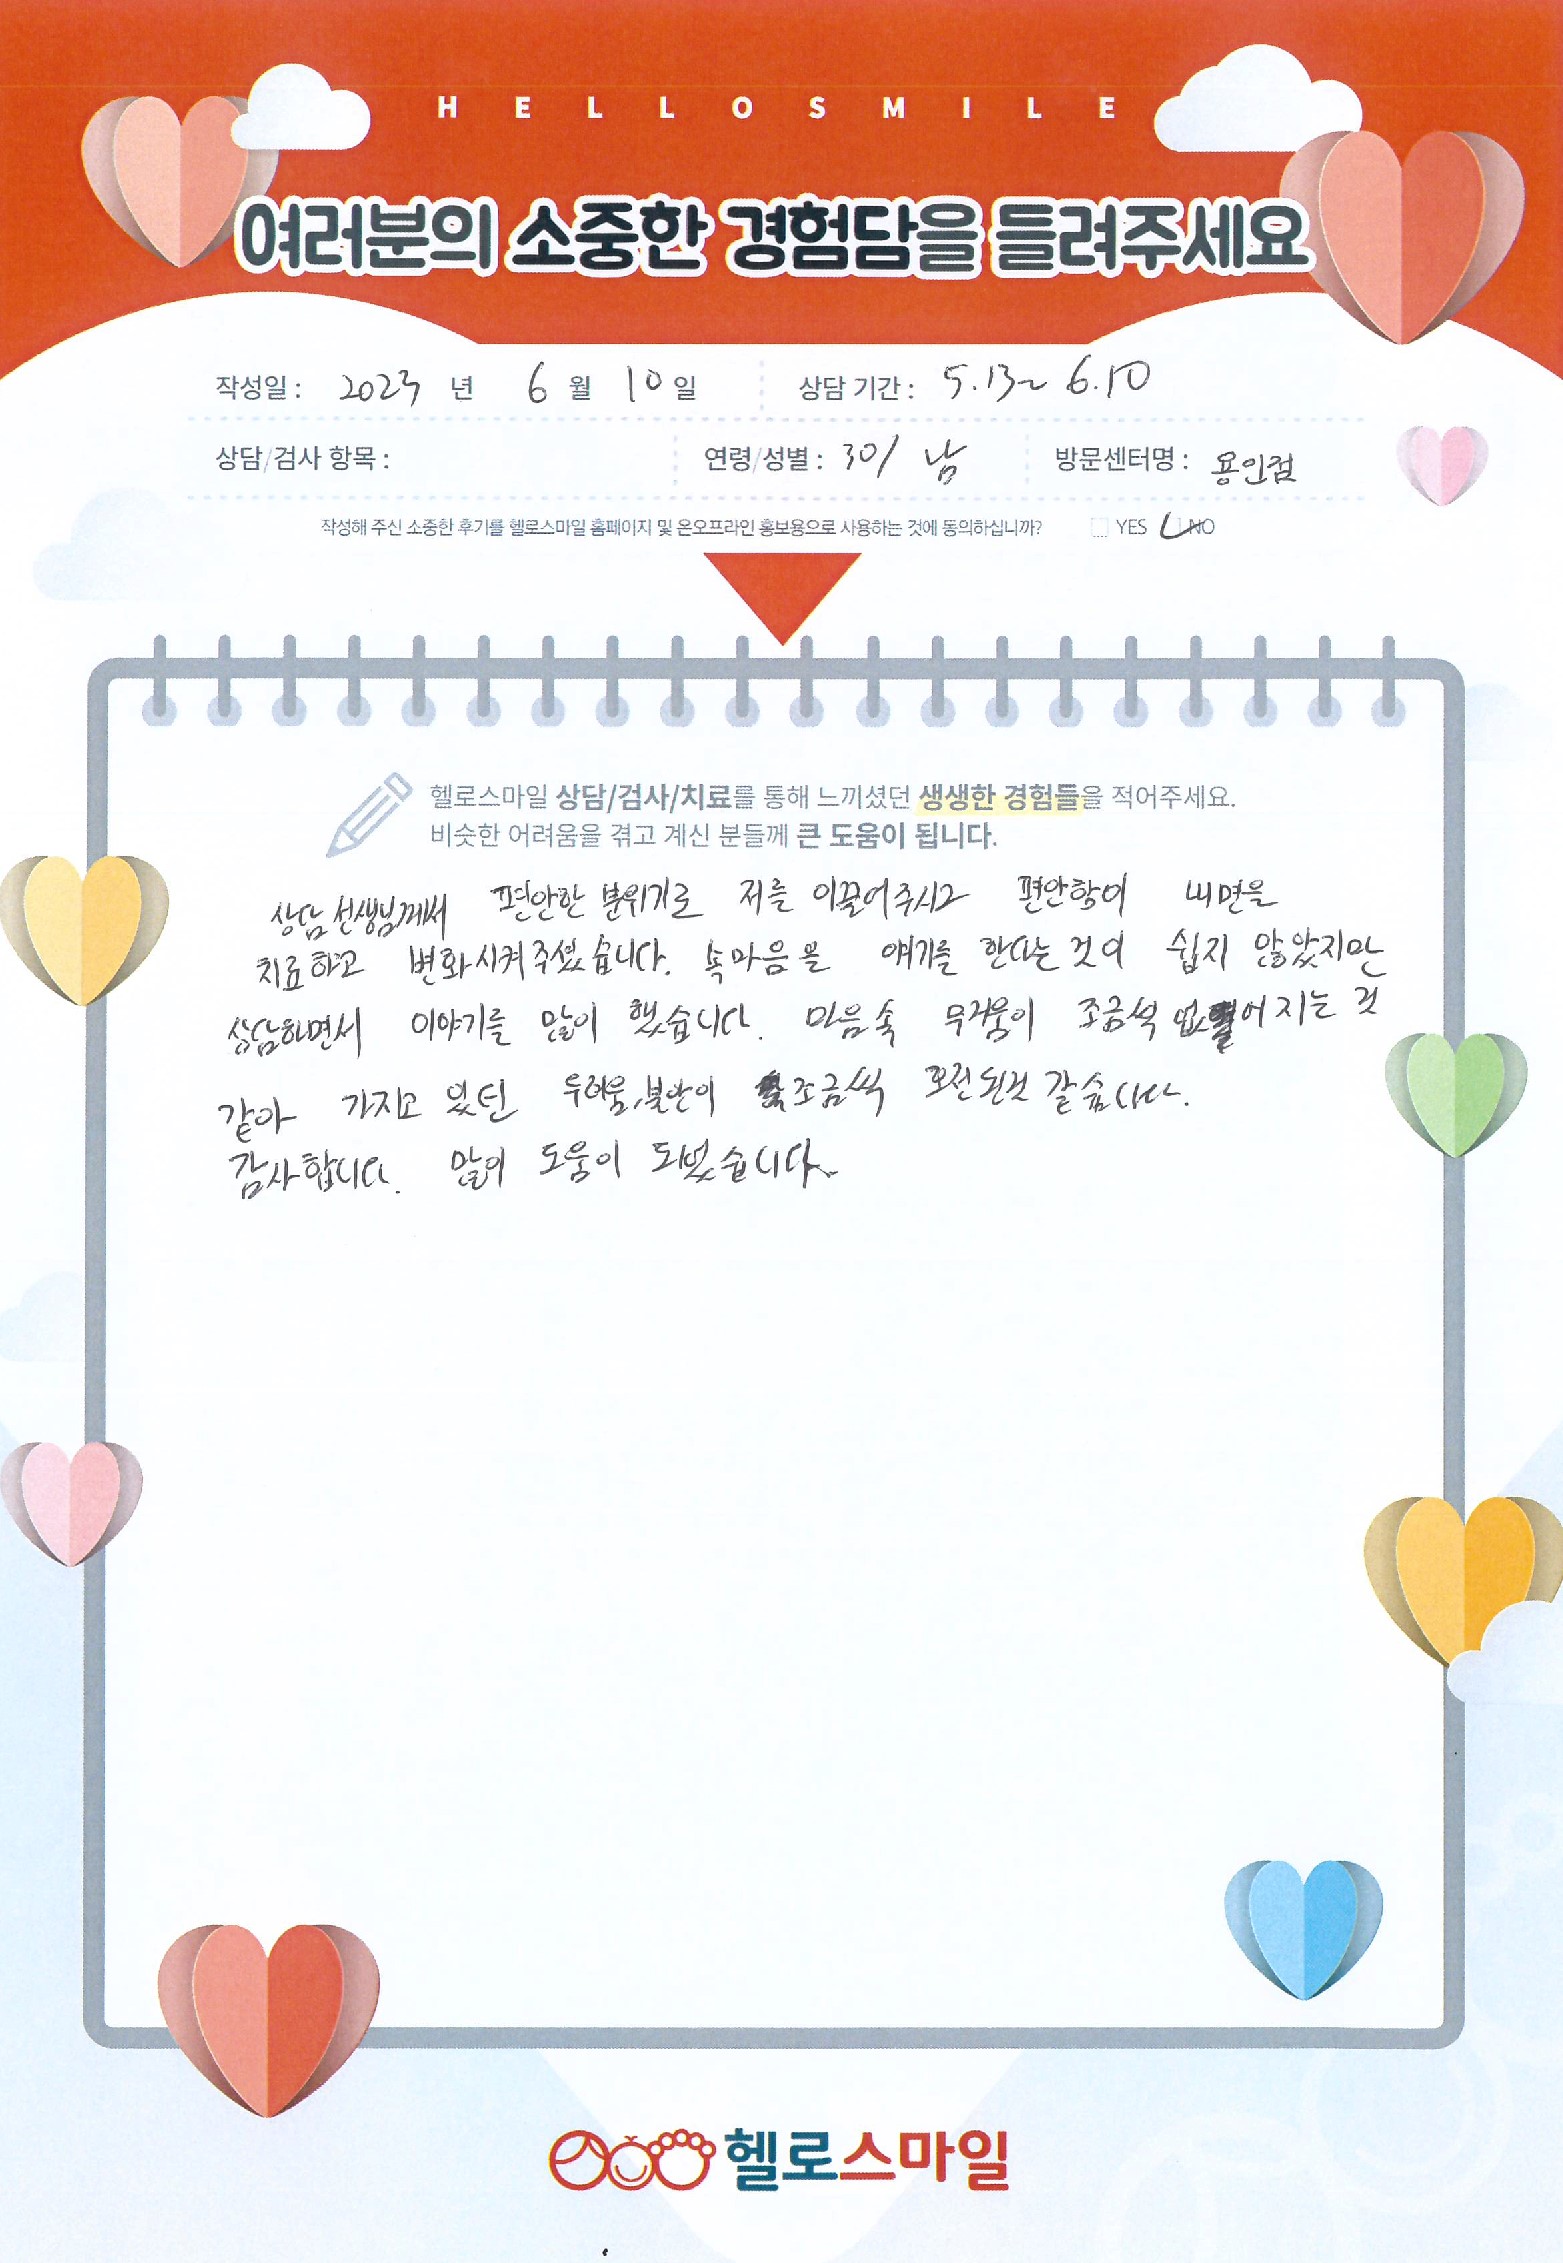 HELLOSMILE
여러분의 소중한 경험담을 들려주세요
작성일 : 2023 년 6 월 10 일 상담 기간 : 5.13~ 6.10
상담/검사 항목 : 연령/성별 : 30/ 남 방문센터명 : 용인점
작성해 주신 소중한 후기를 헬로스마일 홈페이지 및 온오프라인 홍보용으로 사용하는 것에 동의하십니까? YES NO
헬로스마일 상담/검사/치료를 통해 느끼셨던 생생한 경험들을 적어주세요.
비슷한 어려움을 겪고 계신 분들께 큰 도움이 됩니다.
상담 선생님께서 편안한 분위기로 저를 이끌어주시고 편안함이 내면을
치료하고 변화시켜주셨습니다. 속마음을 얘기를 한다는 것이 쉽지 않았지만
상담하면서 이야기를 많이 했습니다. 마음속 무거움이 조금씩 없어지는 것
같아 가지고 있던 우려움,불안이 조금씩 호전된것 같습니다.
감사합니다. 많이 도움이 되었습니다.
헬로스마일